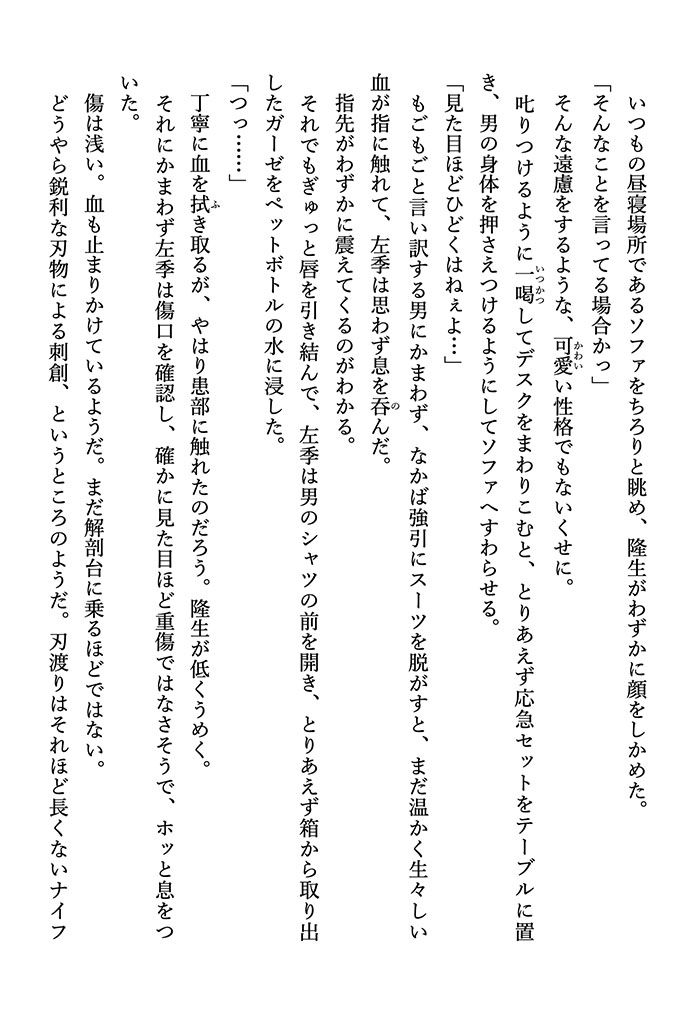 いつもの昼寝場所であるソファをちろりと眺め、隆生がわずかに顔をしかめた。
「そんなことを言ってる場合かっ」
そんな遠慮をするような、可愛い性格でもないくせに。
叱りつけるように一喝してデスクをまわりこむと、とりあえず応急セットをテーブルに置
き、男の身体を押さえつけるようにしてソファへすわらせる。
「見た目ほどひどくはねぇよ…」
もごもごと言い訳する男にかまわず、なかば強引にスーツを脱がすと、まだ温かく生々しい
血が指に触れて、左季は思わず息を呑んだ。
指先がわずかに震えてくるのがわかる。
それでもぎゅっと唇を引き結んで、左季は男のシャツの前を開き、とりあえず箱から取り出
したガーゼをペットボトルの水に浸した。
「つっ……」
丁寧に血を拭き取るが、やはり患部に触れたのだろう。隆生が低くうめく。
それにかまわず左季は傷口を確認し、確かに見た目ほど重傷ではなさそうで、ホッと息をつ
いた。
傷は浅い。血も止まりかけているようだ。まだ解剖台に乗るほどではない。
どうやら鋭利な刃物による刺創、というところのようだ。刃渡りはそれほど長くないナイフ